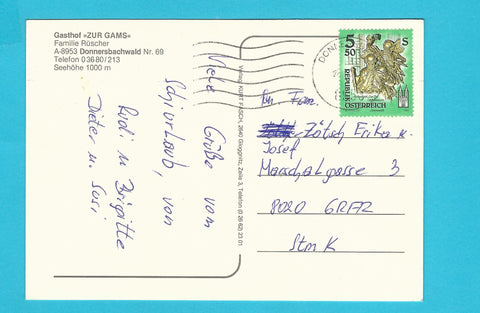 Gasthof »ZUR GAMS«
Familie Rüscher
A-8953 Donnersbachwald Nr. 69
Telefon 03680/213
Seehöhe 1000 m
Viele Grüße vom
Schiurlaub, von
Rudi u. Brigitte
Dieter u. Susi
Verlag KURT KAISCH, 2640 Gloggnitz, Zeile 3, Telefon (0 26 62) 23 01
5 50 S
REPUBLIK
ÖSTERREICH
Fam.
Zötsch Erika u.
Josef
Marschallgasse 3
8020 GRAZ
Stmk